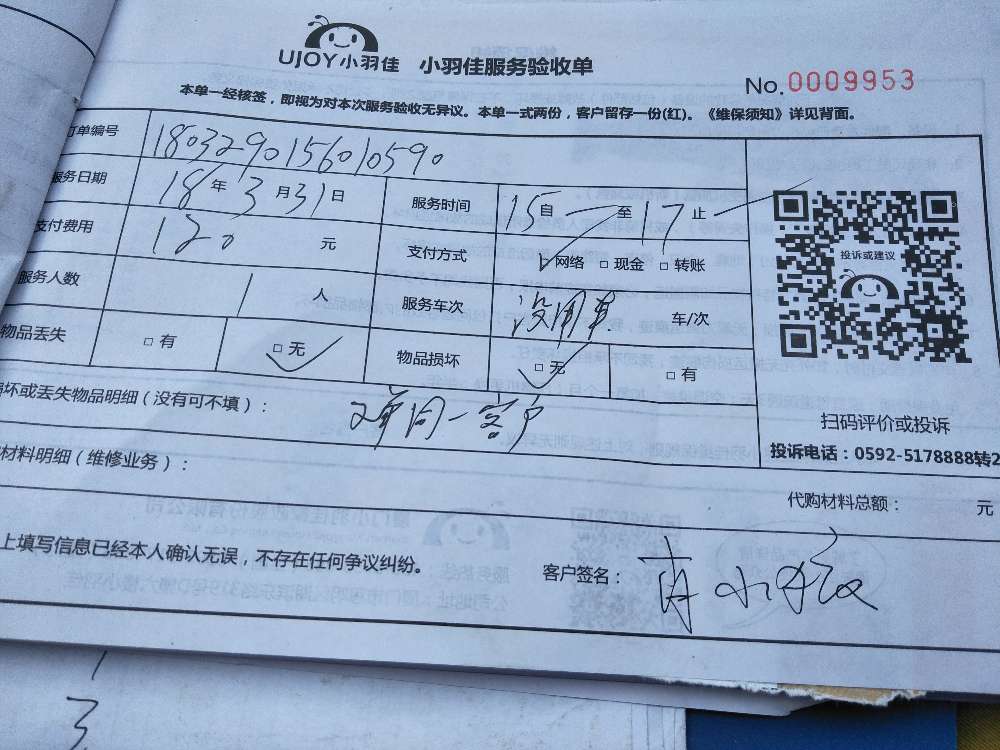 UJOY小羽佳 小羽佳服务验收单
No.0009953
本单一经核签，即视为对本次服务验收无异议。本单一式两份，客户留存一份(红)。《维保须知》详见背面。
订单编号 1803290156010590
服务日期 18年3月31日 服务时间 15自 至17止
支付费用 120 元 支付方式 □网络 □现金 □转账
服务人数 1 人 服务车次 没用车 车/次
物品丢失 □有 □无 物品损坏 □无 □有
损坏或丢失物品明细（没有可不填）： 2单同一客户
材料明细（维修业务）：
代购材料总额： 元
上填写信息已经本人确认无误，不存在任何争议纠纷。 客户签名： 肖小
投诉或建议
扫码评价或投诉
投诉电话：0592-5178888转2
1
3